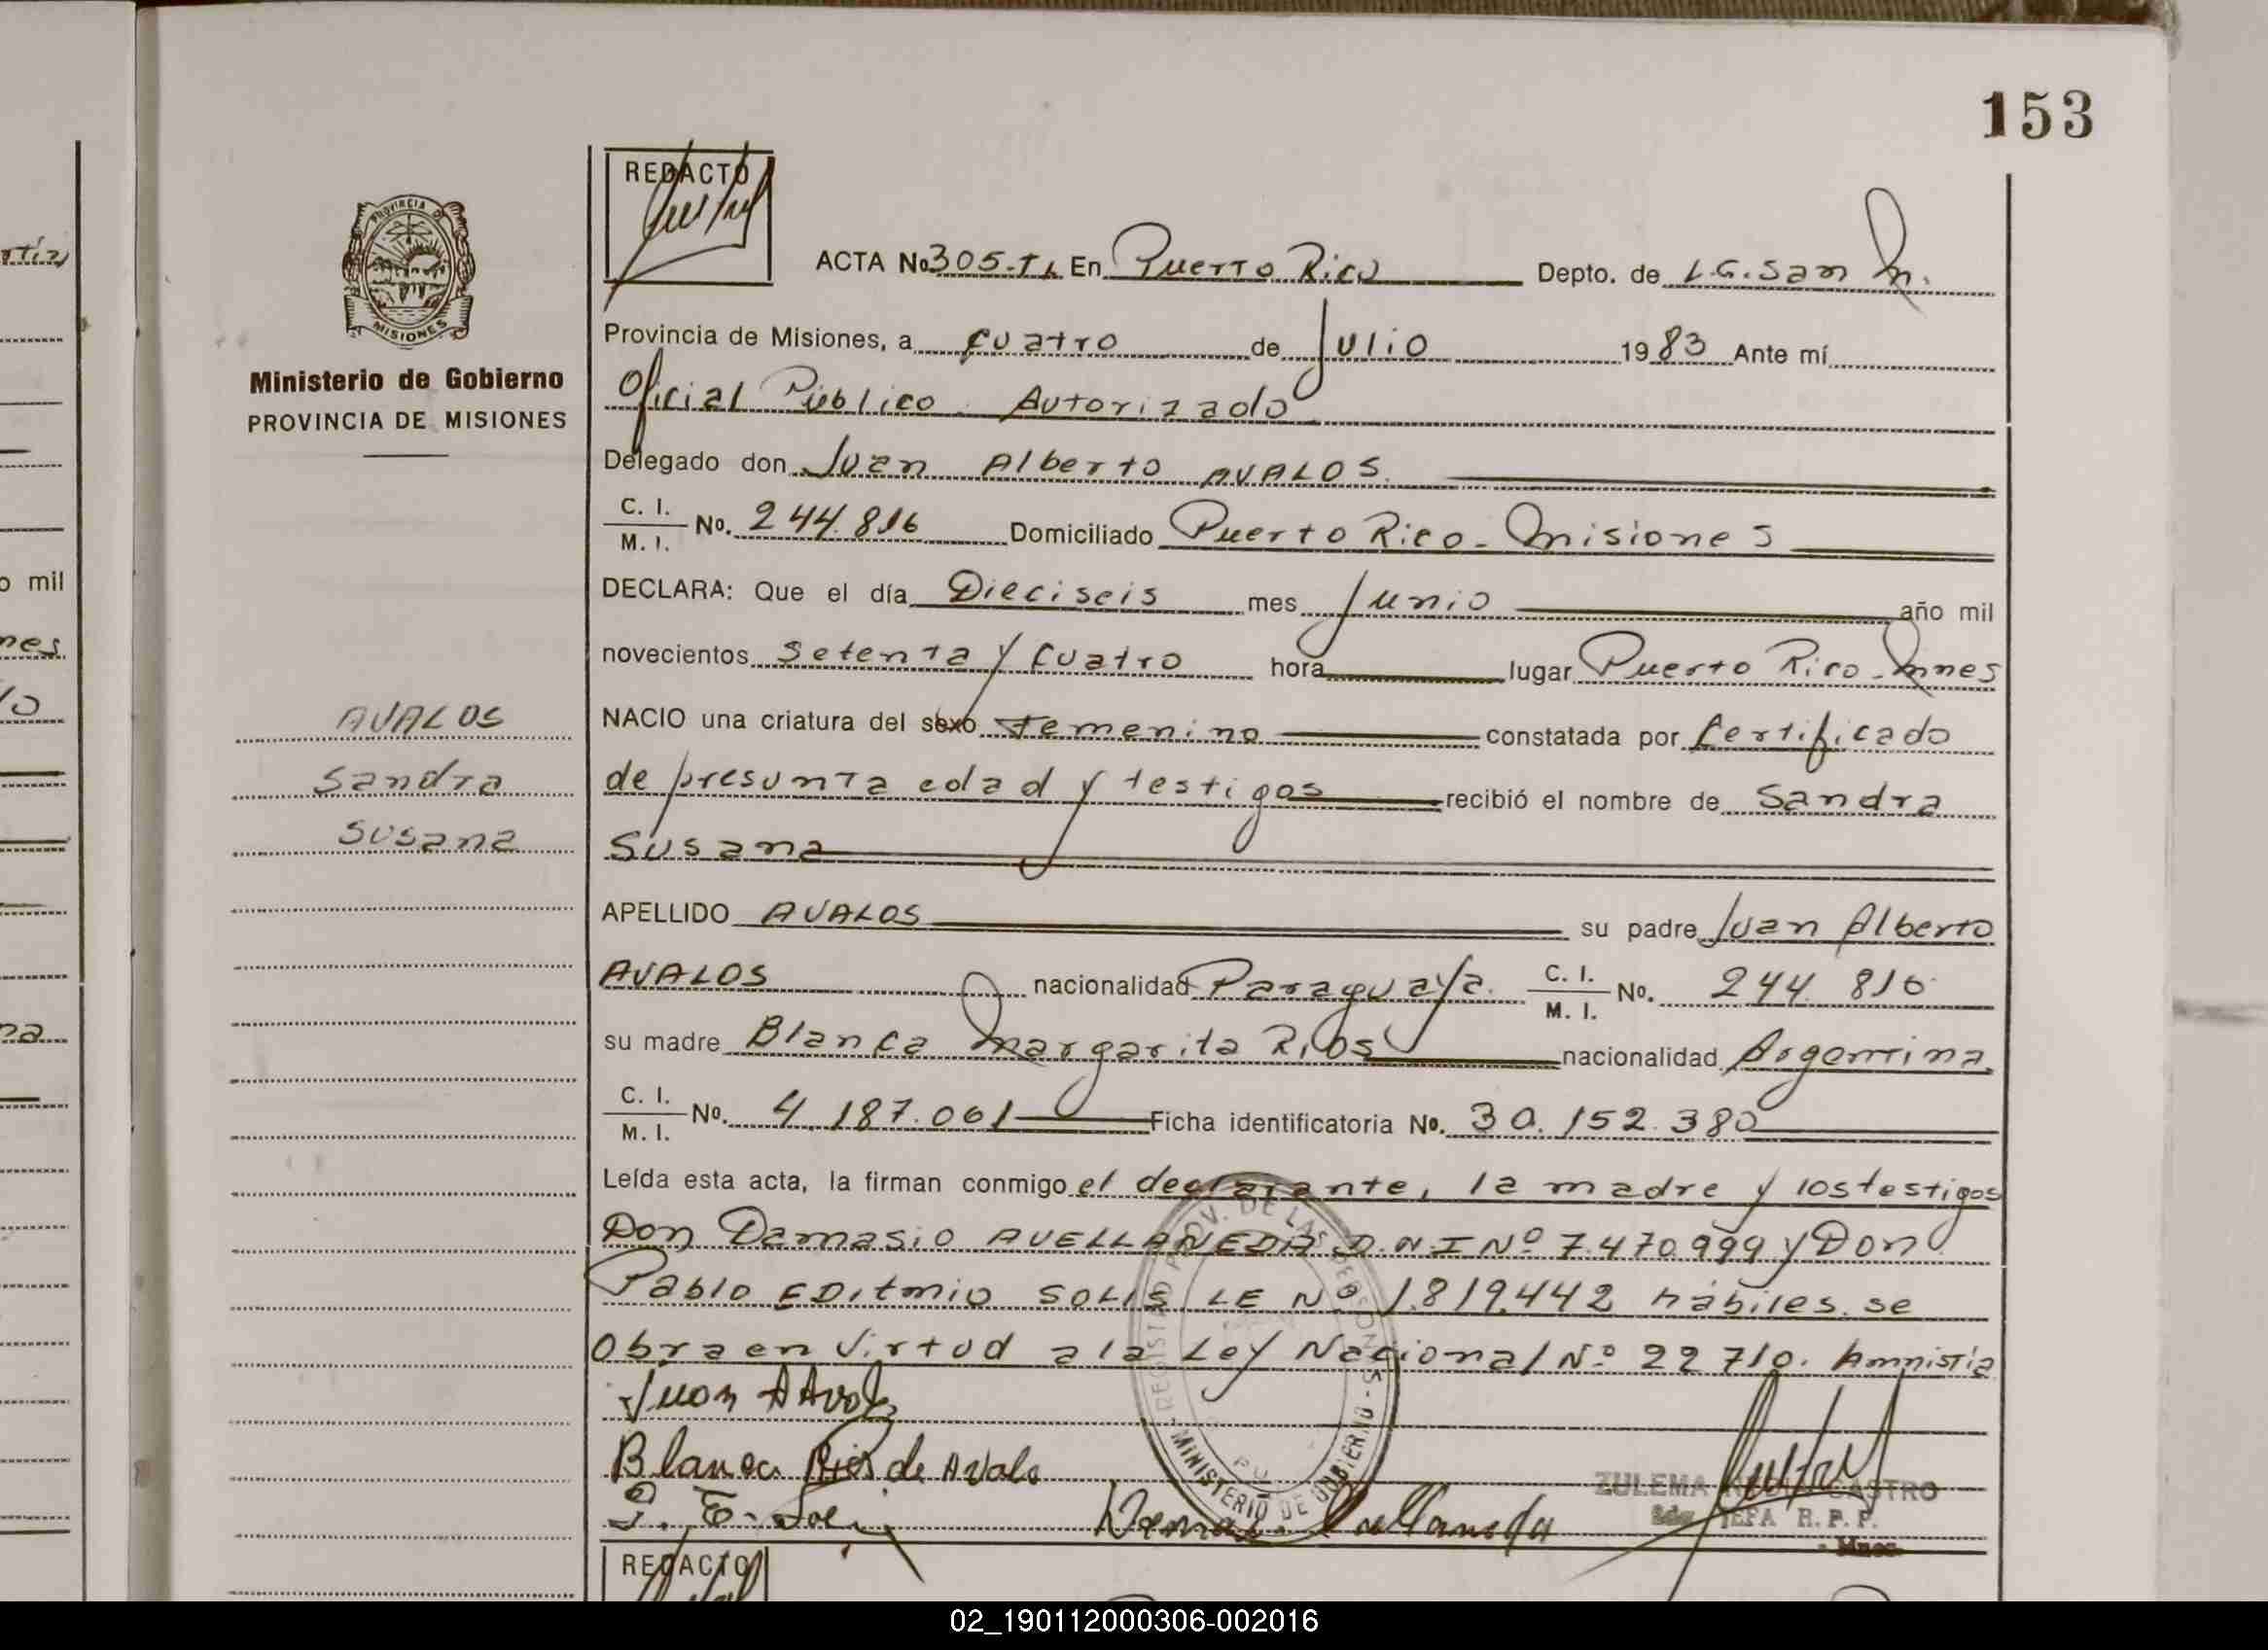 153
REDACTO
PROVINCIA D
MISIONES
Ministerio de Gobierno
PROVINCIA DE MISIONES
ACTA No 305-TL En Puerto Rico Depto. de L.G. San M.
Provincia de Misiones, a cuatro de Julio 1983 Ante mí
Oficial Público Autorizado
Delegado don Juan Alberto AVALOS.
C. I. / M. I. No. 244.816 Domiciliado Puerto Rico - Misiones
DECLARA: Que el día Dieciseis mes Junio año mil
novecientos setenta y cuatro hora lugar Puerto Rico - Mnes
NACIO una criatura del sexo Femenino constatada por Certificado
de presunta edad y testigos recibió el nombre de Sandra
Susana
APELLIDO AVALOS su padre Juan Alberto
AVALOS nacionalidad Paraguaya. C. I. / M. I. No. 244 816
su madre Blanca Margarita Rios nacionalidad Argentina.
C. I. / M. I. No. 4.187.061 Ficha identificatoria No. 30.152.380
Leída esta acta, la firman conmigo el declarante, la madre y los testigos
Don Damasio AVELLANEDA D.N.I Nº 7.470.999 y Don
Pablo EDitmio SOLIS LE Nº 1.819.442 hábiles. se
Obra en virtud a la Ley Nacional Nº 22710. Amnistía
AVALOS
Sandra
Susana
Juan A Avalos
Blanca Rios de Avalo
REGISTRO PROV. DE LAS PERSONAS - MINISTERIO DE GOBIERNO
ZULEMA CASTRO
JEFA R. P. P.
Mnes
REDACTO
rtíz
o mil
nes
lo
na
02_190112000306-002016